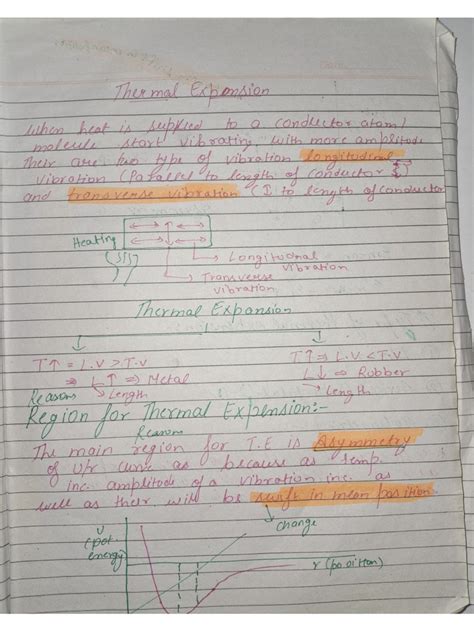 Thermal Expansion
When heat is supplied to a conductor atom/
molecule start vibrating with more amplitude
Their are two type of vibration longitudinal
vibration (Parallel to length of conductor
and transverse vibration (⊥) to length of conductor
Heating
Longitudnal
vibration
Transverse
vibration
Thermal Expansion
T↑ = L.V > T.V
T↑ ⇒ L.V < T.V
⇒ L↑ ⇒ Metal
L↓ ⇒ Rubber
Reason
Length
Length
Region for Thermal Expension:-
Reason
The main region for T.E is Asymmetry
of U/r curve as because as temp.
inc. amplitude of a vibration inc. as
well as their will be swift in mean position
change
U
(pot.
energy)
r (position)